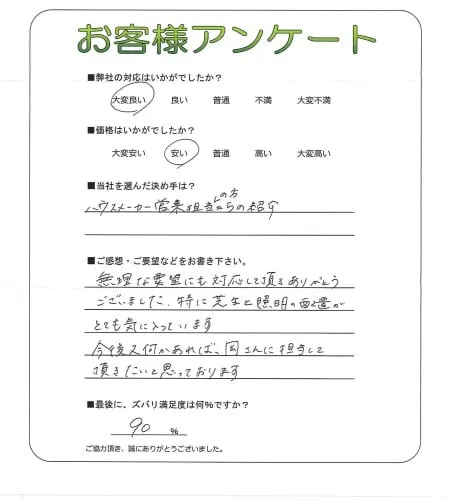 お客様アンケート
■弊社の対応はいかがでしたか？
大変良い 良い 普通 不満 大変不満
■価格はいかがでしたか？
大変安い 安い 普通 高い 大変高い
■当社を選んだ決め手は？
ハウスメーカー営業担当の方からの紹介
■ご感想・ご要望などをお書き下さい。
無理な要望にも対応して頂きありがとう
ございました。特に芝生と照明の配置が
とても気に入っています
今後又何かあれば、岡さんに担当して
頂きたいと思っております
■最後に、ズバリ満足度は何%ですか？
90 %
ご協力頂き、誠にありがとうございました。